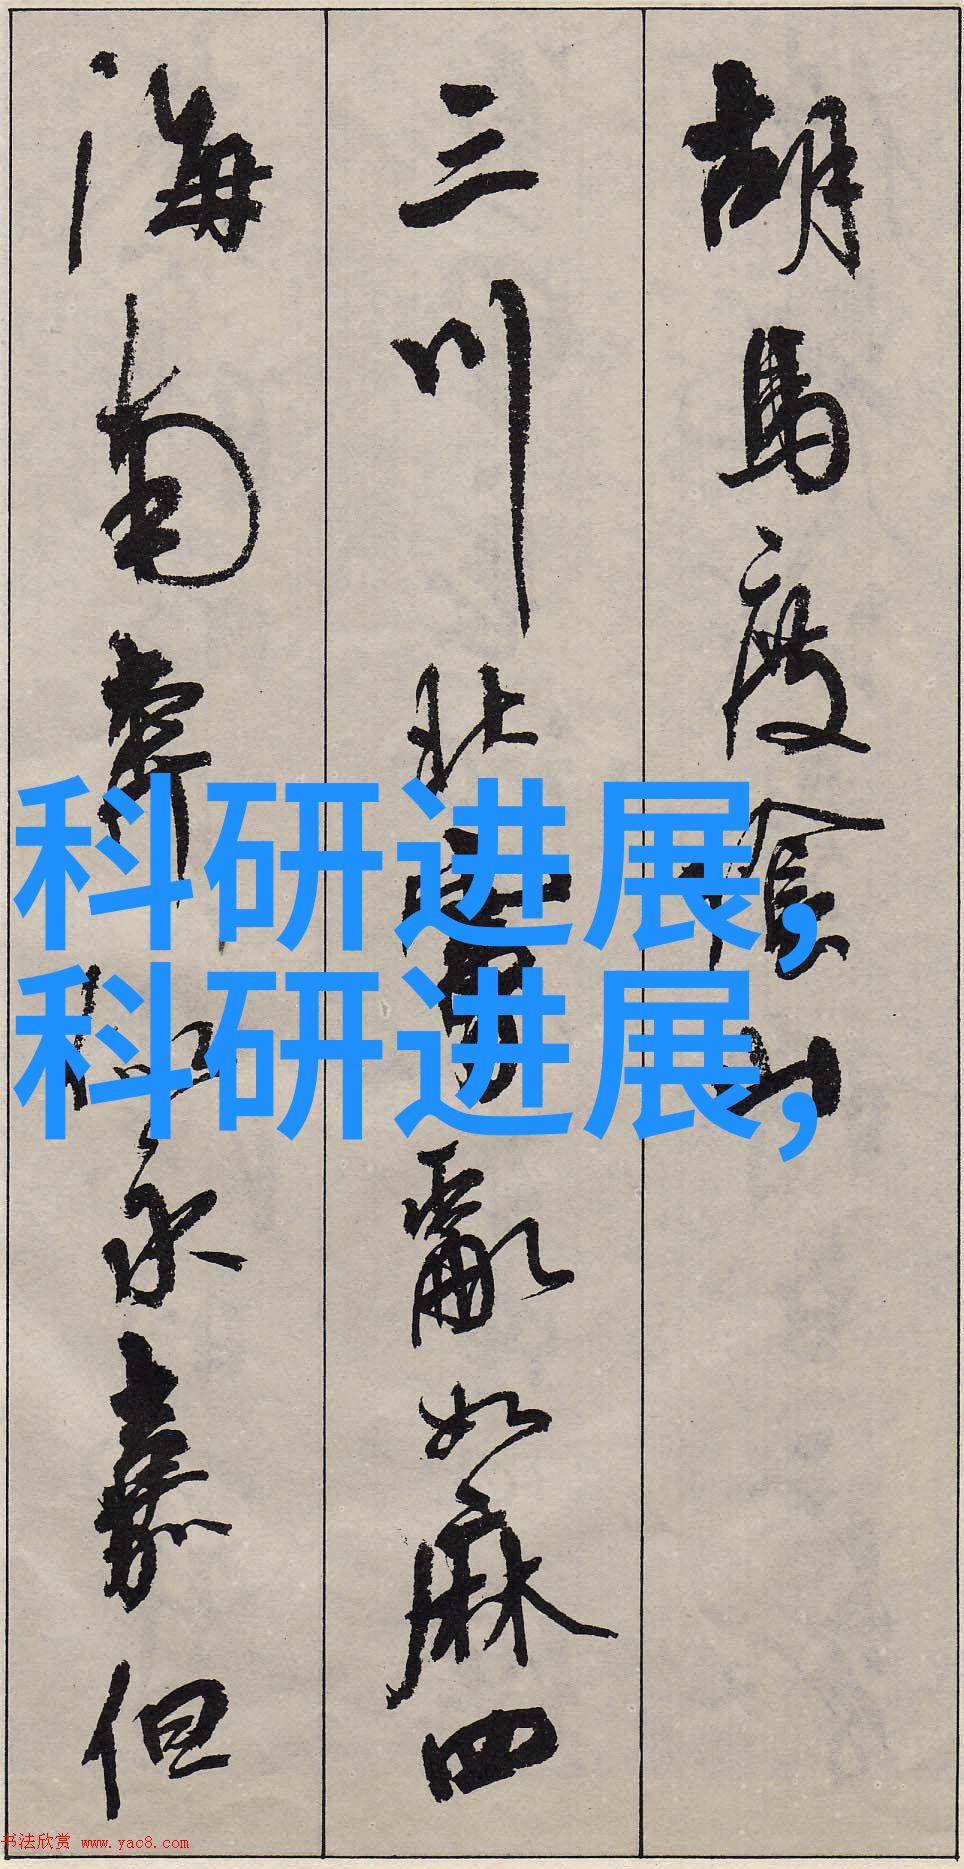 胡馬度陰山
三川北虜亂如麻四
海南奔似永嘉但
科研进展,
科研进展,
书法欣赏 www.yac8.com